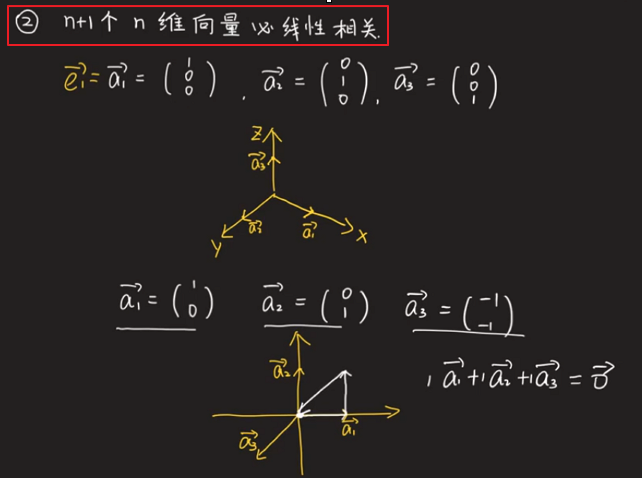 ② n+1个 n 维向量必线性相关.
e₁⃗ = a₁⃗ = (1 0 0) , a₂⃗ = (0 1 0) , a₃⃗ = (0 0 1)
Z
a₃⃗
a₂⃗
a₁⃗
Y
X
a₁⃗ = (1 0) a₂⃗ = (0 1) a₃⃗ = (-1 -1)
a₂⃗
1 a₁⃗ +1 a₂⃗ +1 a₃⃗ = 0⃗
a₁⃗
a₃⃗